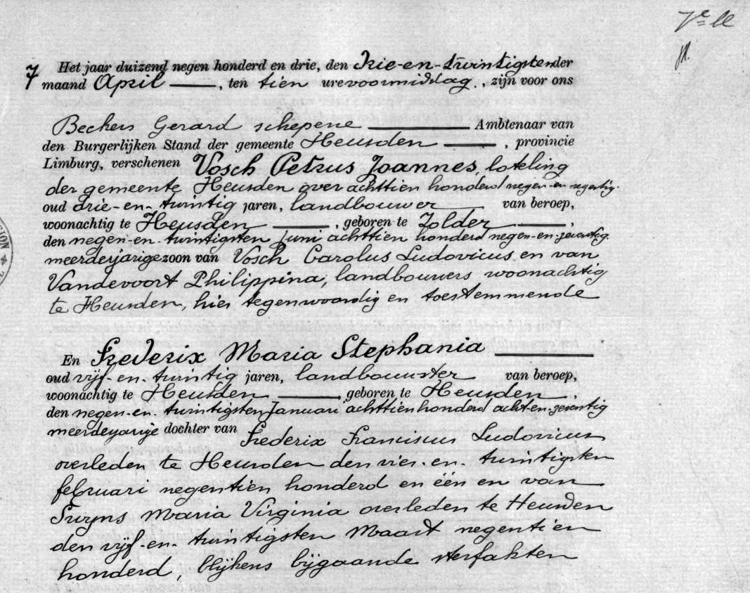 7
Het jaar duizend negen honderd en drie, den drie-en-twintigsten der
maand April, ten tien ure voormiddag, zijn voor ons
Beckers Gerard schepene Ambtenaar van
den Burgerlijken Stand der gemeente Heusden, provincie
Limburg, verschenen Vosch Petrus Joannes, loteling
der gemeente Heusden over achttien honderd negen-en-negentig.
oud drie-en-twintig jaren, landbouwer van beroep,
woonachtig te Heusden, geboren te Zolder
den negen-en-twintigsten Juni achttien honderd negen-en-zeventig
meerderjarige zoon van Vosch Carolus Ludovicus en van
Vandevoort Philippina, landbouwers woonachtig
te Heusden, hier tegenwoordig en toestemmende
En Frederix Maria Stephania
oud vijf-en-twintig jaren, landbouwster van beroep,
woonachtig te Heusden, geboren te Heusden,
den negen-en-twintigsten Januari achttien honderd acht en zeventig
meerderjarige dochter van Frederix Franciscus Ludovicus
overleden te Heusden den vier-en-twintigsten
februari negentien honderd en één en van
Swijns Maria Virginia overleden te Heusden
den vijf-en-twintigsten Maart negentien
honderd, blijkens bijgaande sterfakten